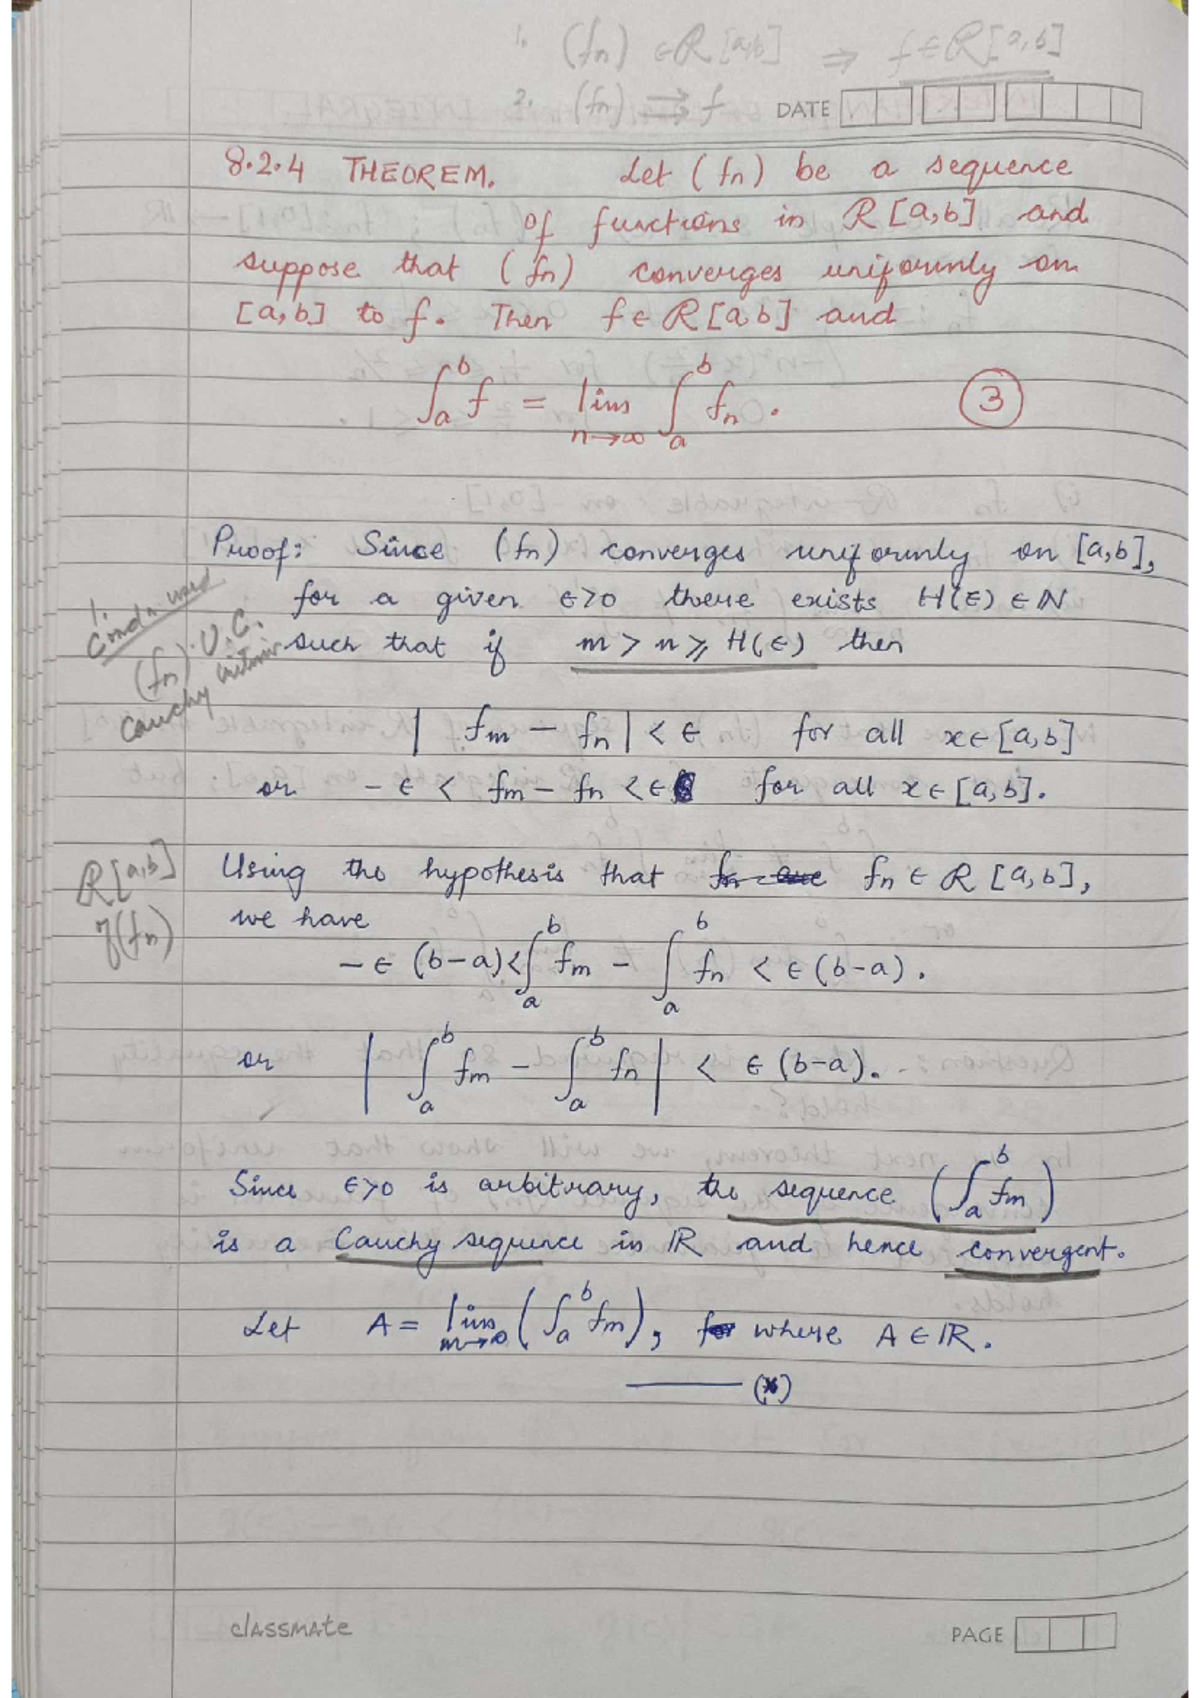 1. (fn) ∈ R[a,b] ⇒ f ∈ R[a,b]
2. (fn) ⇉ f DATE
8.2.4 THEOREM. Let (fn) be a sequence
of functions in R[a,b] and
suppose that (fn) converges uniformly on
[a,b] to f. Then f ∈ R[a,b] and
∫_a^b f = lim_{n→∞} ∫_a^b fn. ③
Proof: Since (fn) converges uniformly on [a,b],
for a given ε>0 there exists H(ε) ∈ N
such that if m > n ≥ H(ε) then
1. Condn used
(fn) U.C.
Cauchy
| fm − fn | < ε for all x ∈ [a,b]
or −ε < fm − fn < ε for all x ∈ [a,b].
R[a,b]
of (fn)
Using the hypothesis that fn ∈ R [a,b],
we have
−ε (b−a) < ∫_a^b fm − ∫_a^b fn < ε (b−a).
or | ∫_a^b fm − ∫_a^b fn | < ε (b−a).
Since ε>0 is arbitrary, the sequence (∫_a^b fm)
is a Cauchy sequence in ℝ and hence convergent.
Let A = lim_{m→∞} (∫_a^b fm), where A ∈ ℝ.
——— (*)
classmate
PAGE